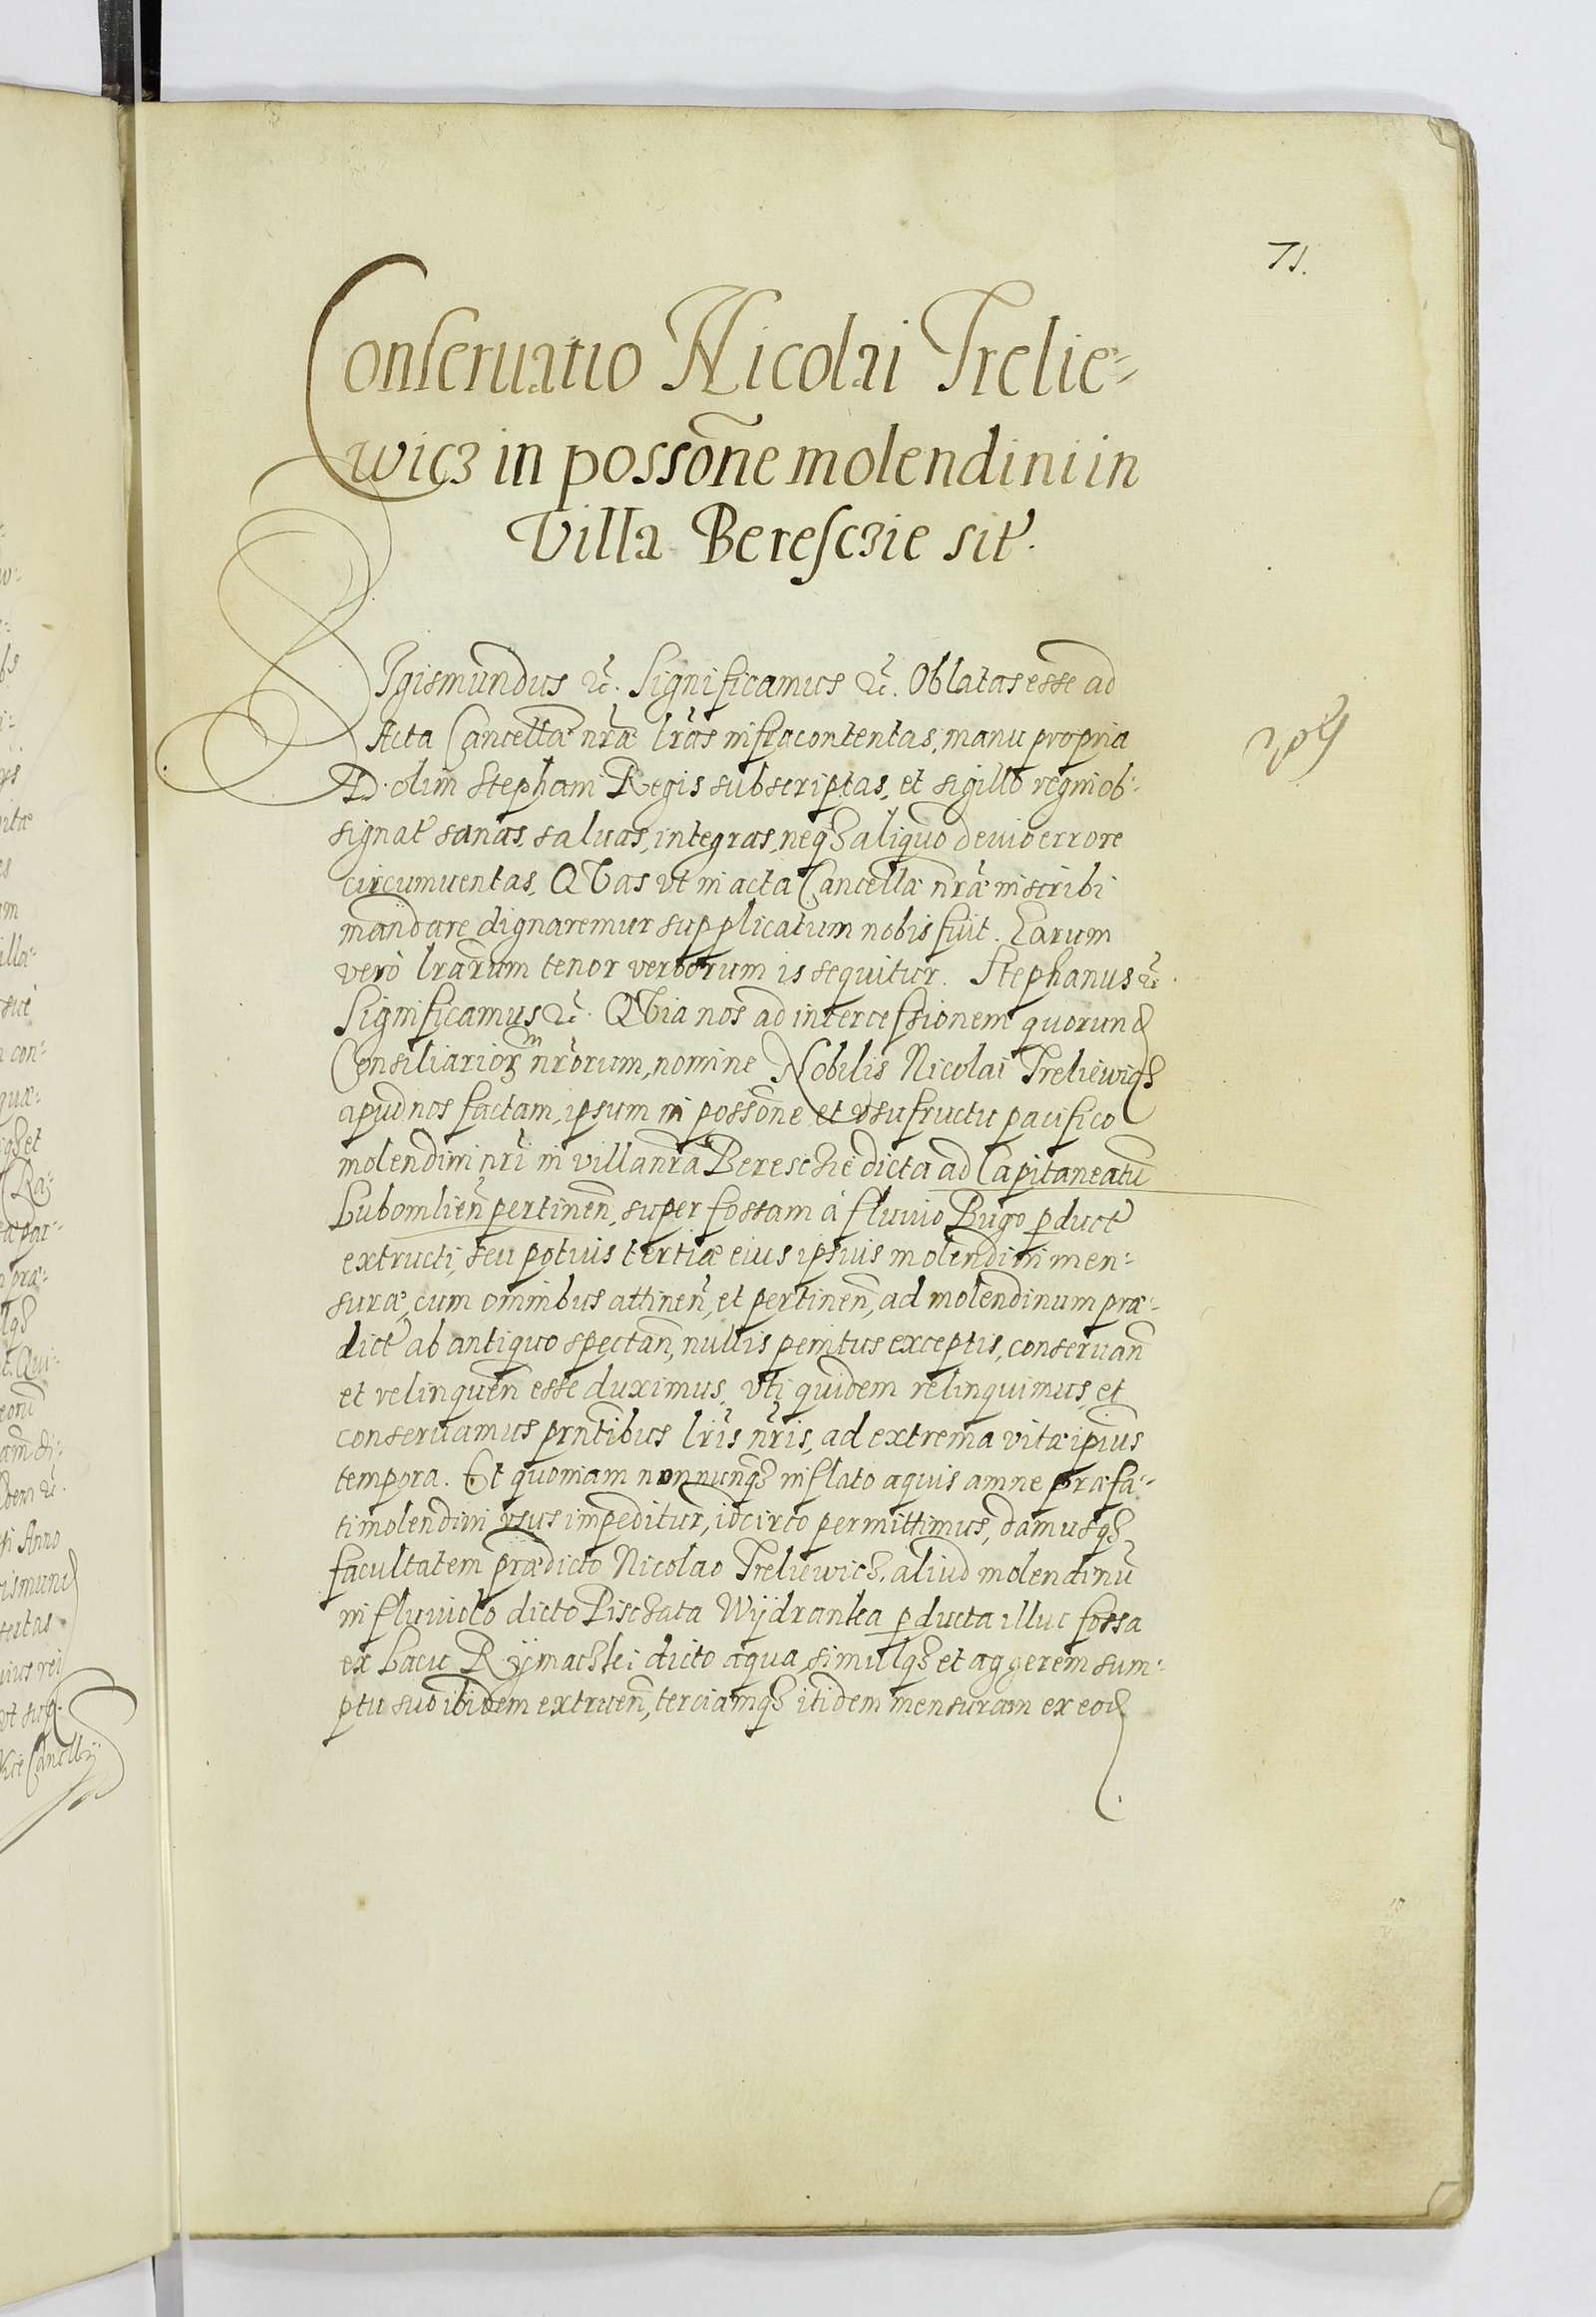 71.
Conseruatio Nicolai Trelie=
wicz in possone molendini in
Villa Beresczie sit.
SIgismundus etc. Significamus etc. Oblatas esse ad
Acta Cancellae nrae lras infracontentas, manu propria
D. olim Stephani Regis subscriptas, et sigillo regni ob=
signat sanas, saluas, integras, neqz aliquo deuio errore
circumuentas, QVas vt in acta Cancellae nrae inscribi
mandare dignaremur supplicatum nobis fuit. Earum
vero lrarum tenor verborum is sequitur. Stephanus etc.
Significamus etc. QVia nos ad intercessionem quorund
Consiliarior nrorum, nomine Nobilis Nicolai Treliewicz
apud nos factam, ipsum in possone et vsufructu pacifico
molendini nri in villa nra Beresczie dicta ad Capitaneatu
Lubomlien pertinen, super fossam à fluuio Bugo pduct
extructi, seu potius tertiae eius ipsius molendini men=
surae, cum omnibus attinen, et pertinen, ad molendinum prae=
dict ab antiquo spectan, nullis penitus exceptis, conseruan
et relinquen esse duximus, vti quidem relinquimus, et
conseruamus prntibus lris nris, ad extrema vitae ipius
tempora. Et quoniam nonnunqz inflato aquis amne praefa=
ti molendini vsus impeditur, idcirco permittimus, damusqz
facultatem praedicto Nicolao Treliewicz, aliud molendinu
in fluuiolo dicto Pisczata Wÿdranka pducta illuc fossa
ex Lacu Rÿmaczki dicto aqua, simulqz et aggerem sum=
ptu suo ibidem extruen, terciamqz itidem mensuram ex eod